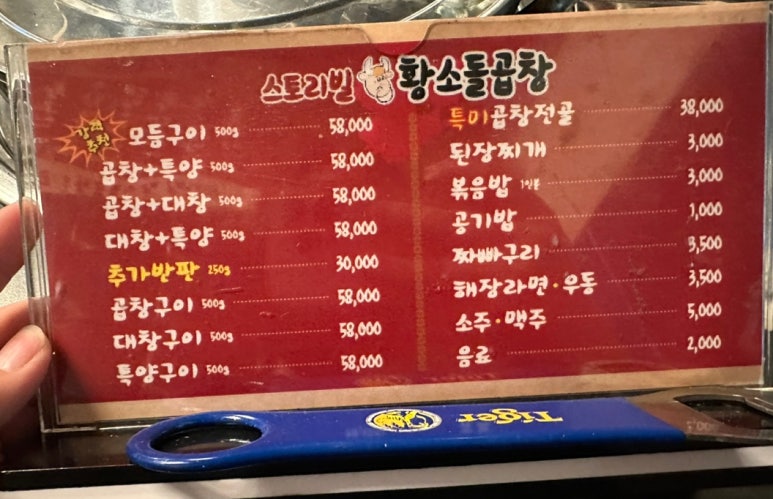 스토리빌 황소들곱창
강력
추천
모듬구이 500g 58,000
곱창+특양 500g 58,000
곱창+대창 500g 58,000
대창+특양 500g 58,000
추가반판 250g 30,000
곱창구이 500g 58,000
대창구이 500g 58,000
특양구이 500g 58,000
특미곱창전골 38,000
된장찌개 3,000
볶음밥 1인분 3,000
공기밥 1,000
짜빠구리 3,500
해장라면·우동 3,500
소주·맥주 5,000
음료 2,000
Tiger